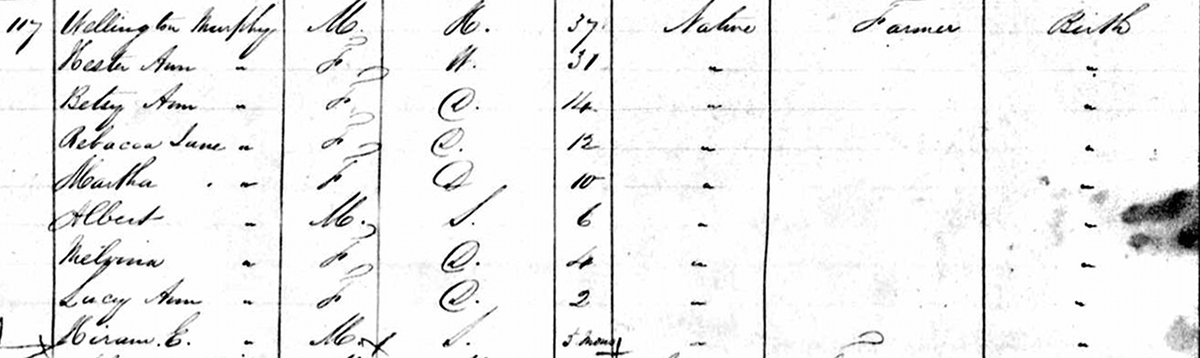 117 Wellington Murphy M. H. 37 Native Farmer Birth
Hester Ann " F W. 31 " "
Betsy Ann " F D. 14 " "
Rebacca Jane " F D. 12 " "
Martha " F D 10 " "
Albert " M. S. 6 " "
Melvina " F D. 4 " "
Lucy Ann " F D. 2 " "
Hiram. E. " M. S. 5 mons " "